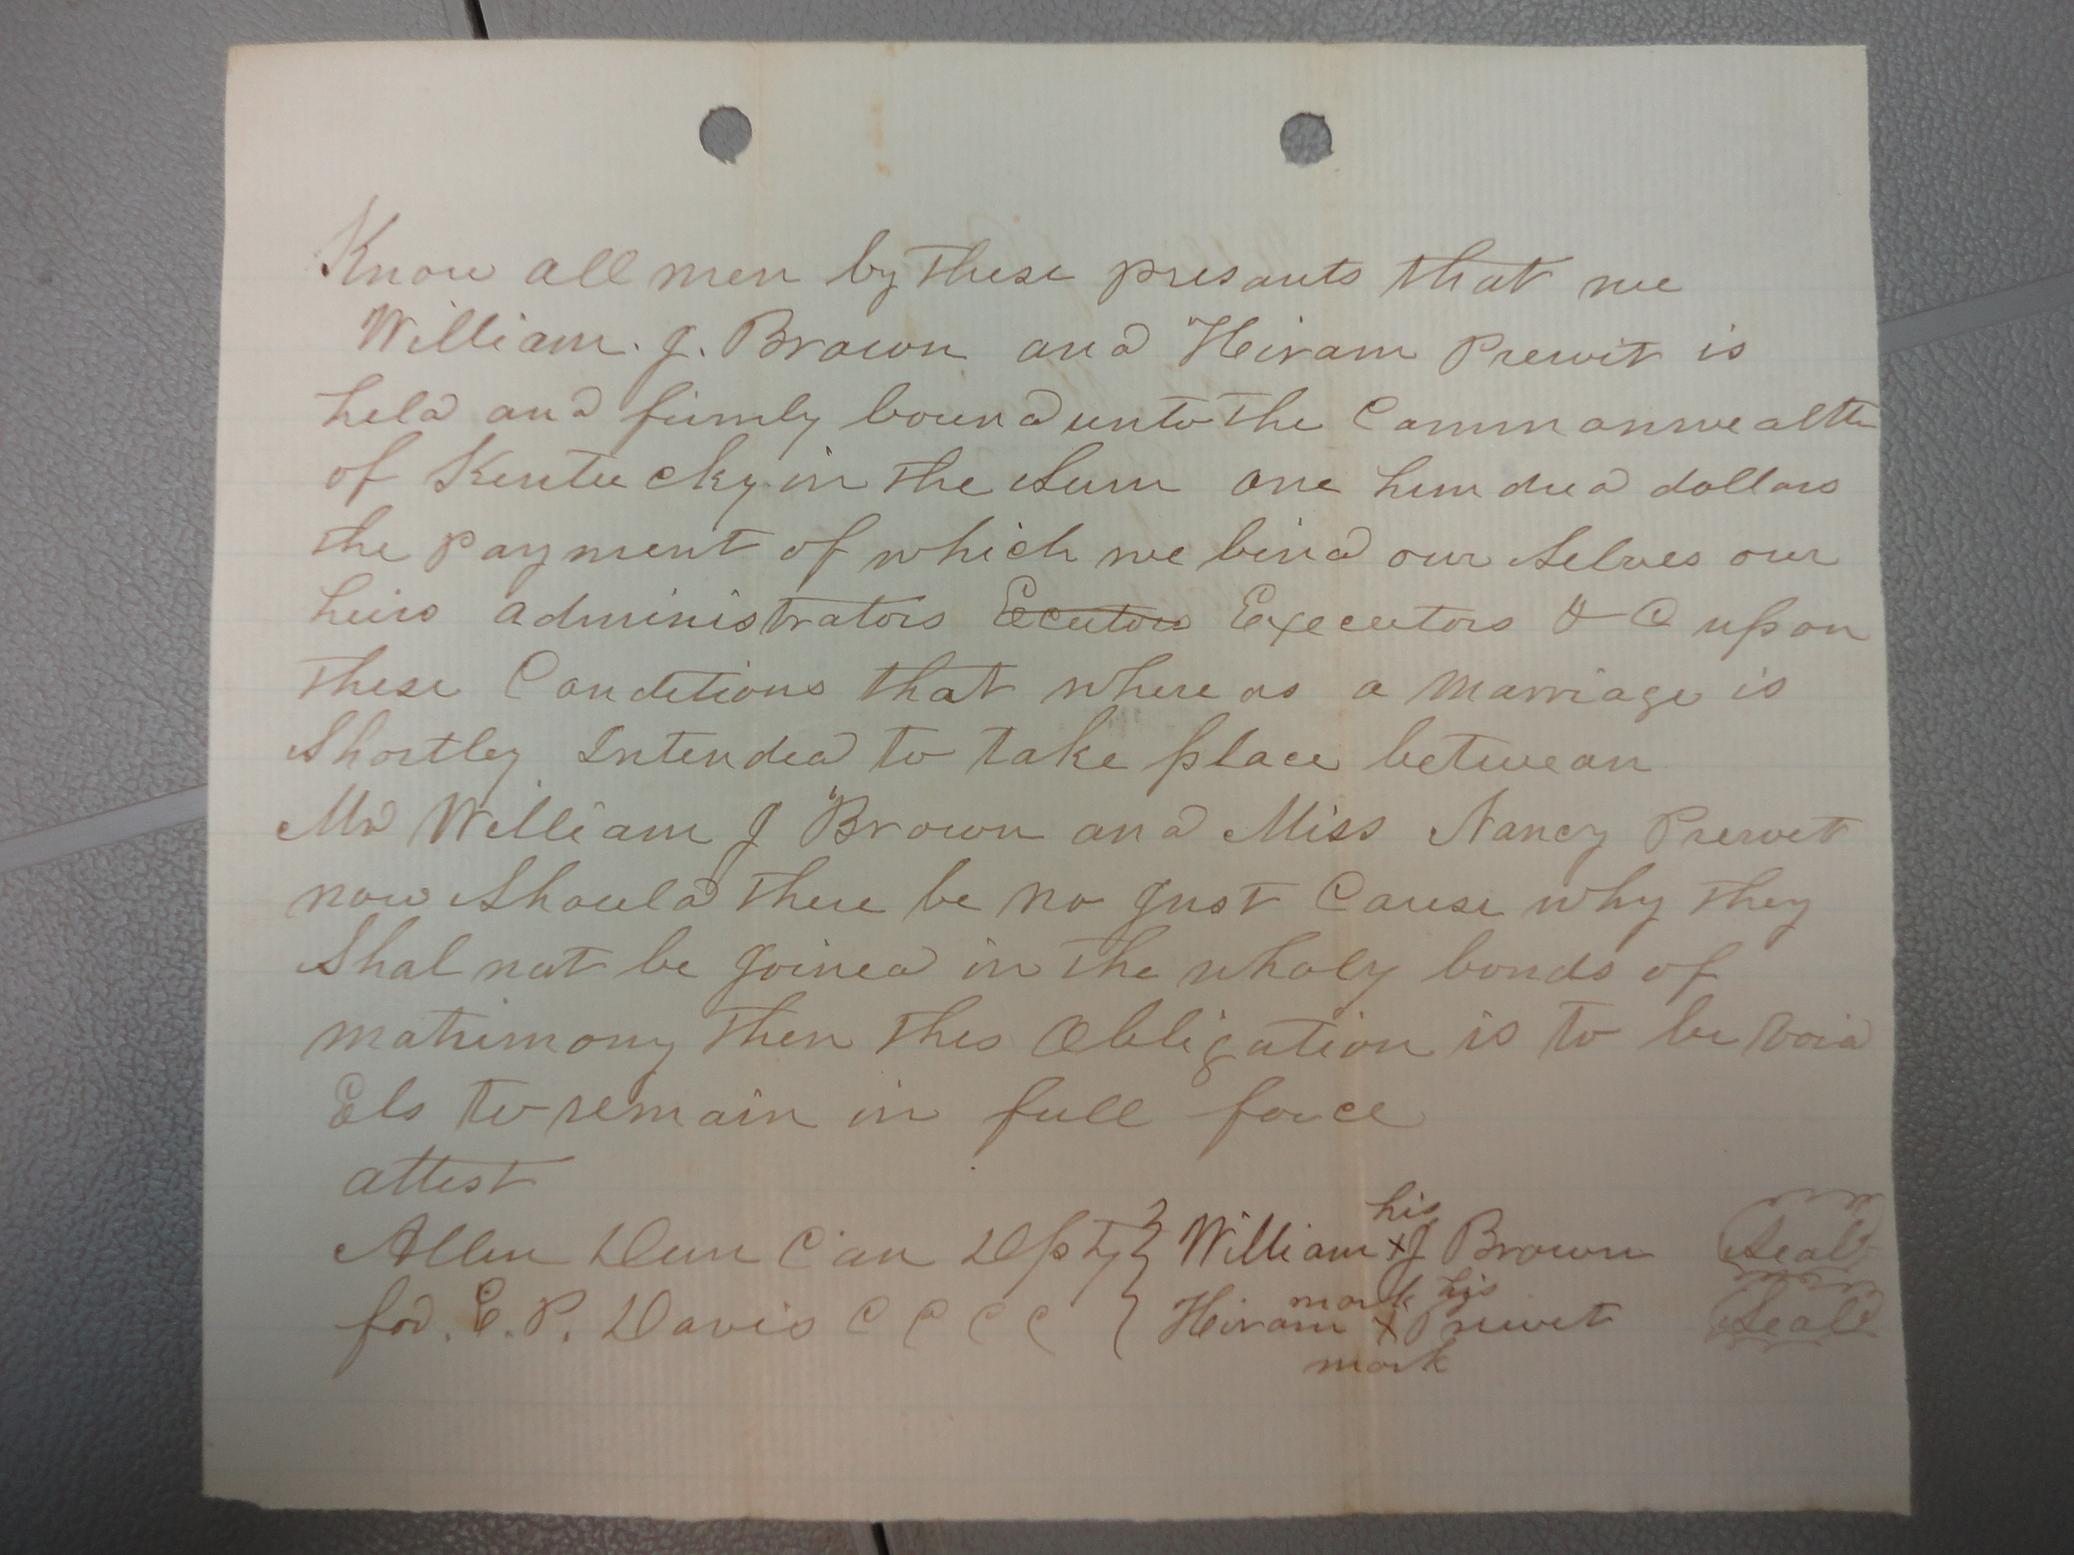 Know all men by these presants that we
William. J. Brown and Hiram Prewit is
held and firmly bound unto the Commonwealth
of Kentucky in the Sum one hundred dollars
the payment of which we bind our Selves our
heirs administrators Ecutors Executors & C upon
these Conditions that where as a marriage is
Shortley Intended to take place betwean
Mr William J Brown and Miss Nancy Prewet
now Should there be no Just Cause why they
Shal not be Joined in the wholy bonds of
matrimony then this Obligation is to be void
Els to remain in full force
attest
his
Allen Dun Can Dpty William x J Brown Seal
mark his
for. E. P. Davis C C C C Hiram x Prewet Seal
mark